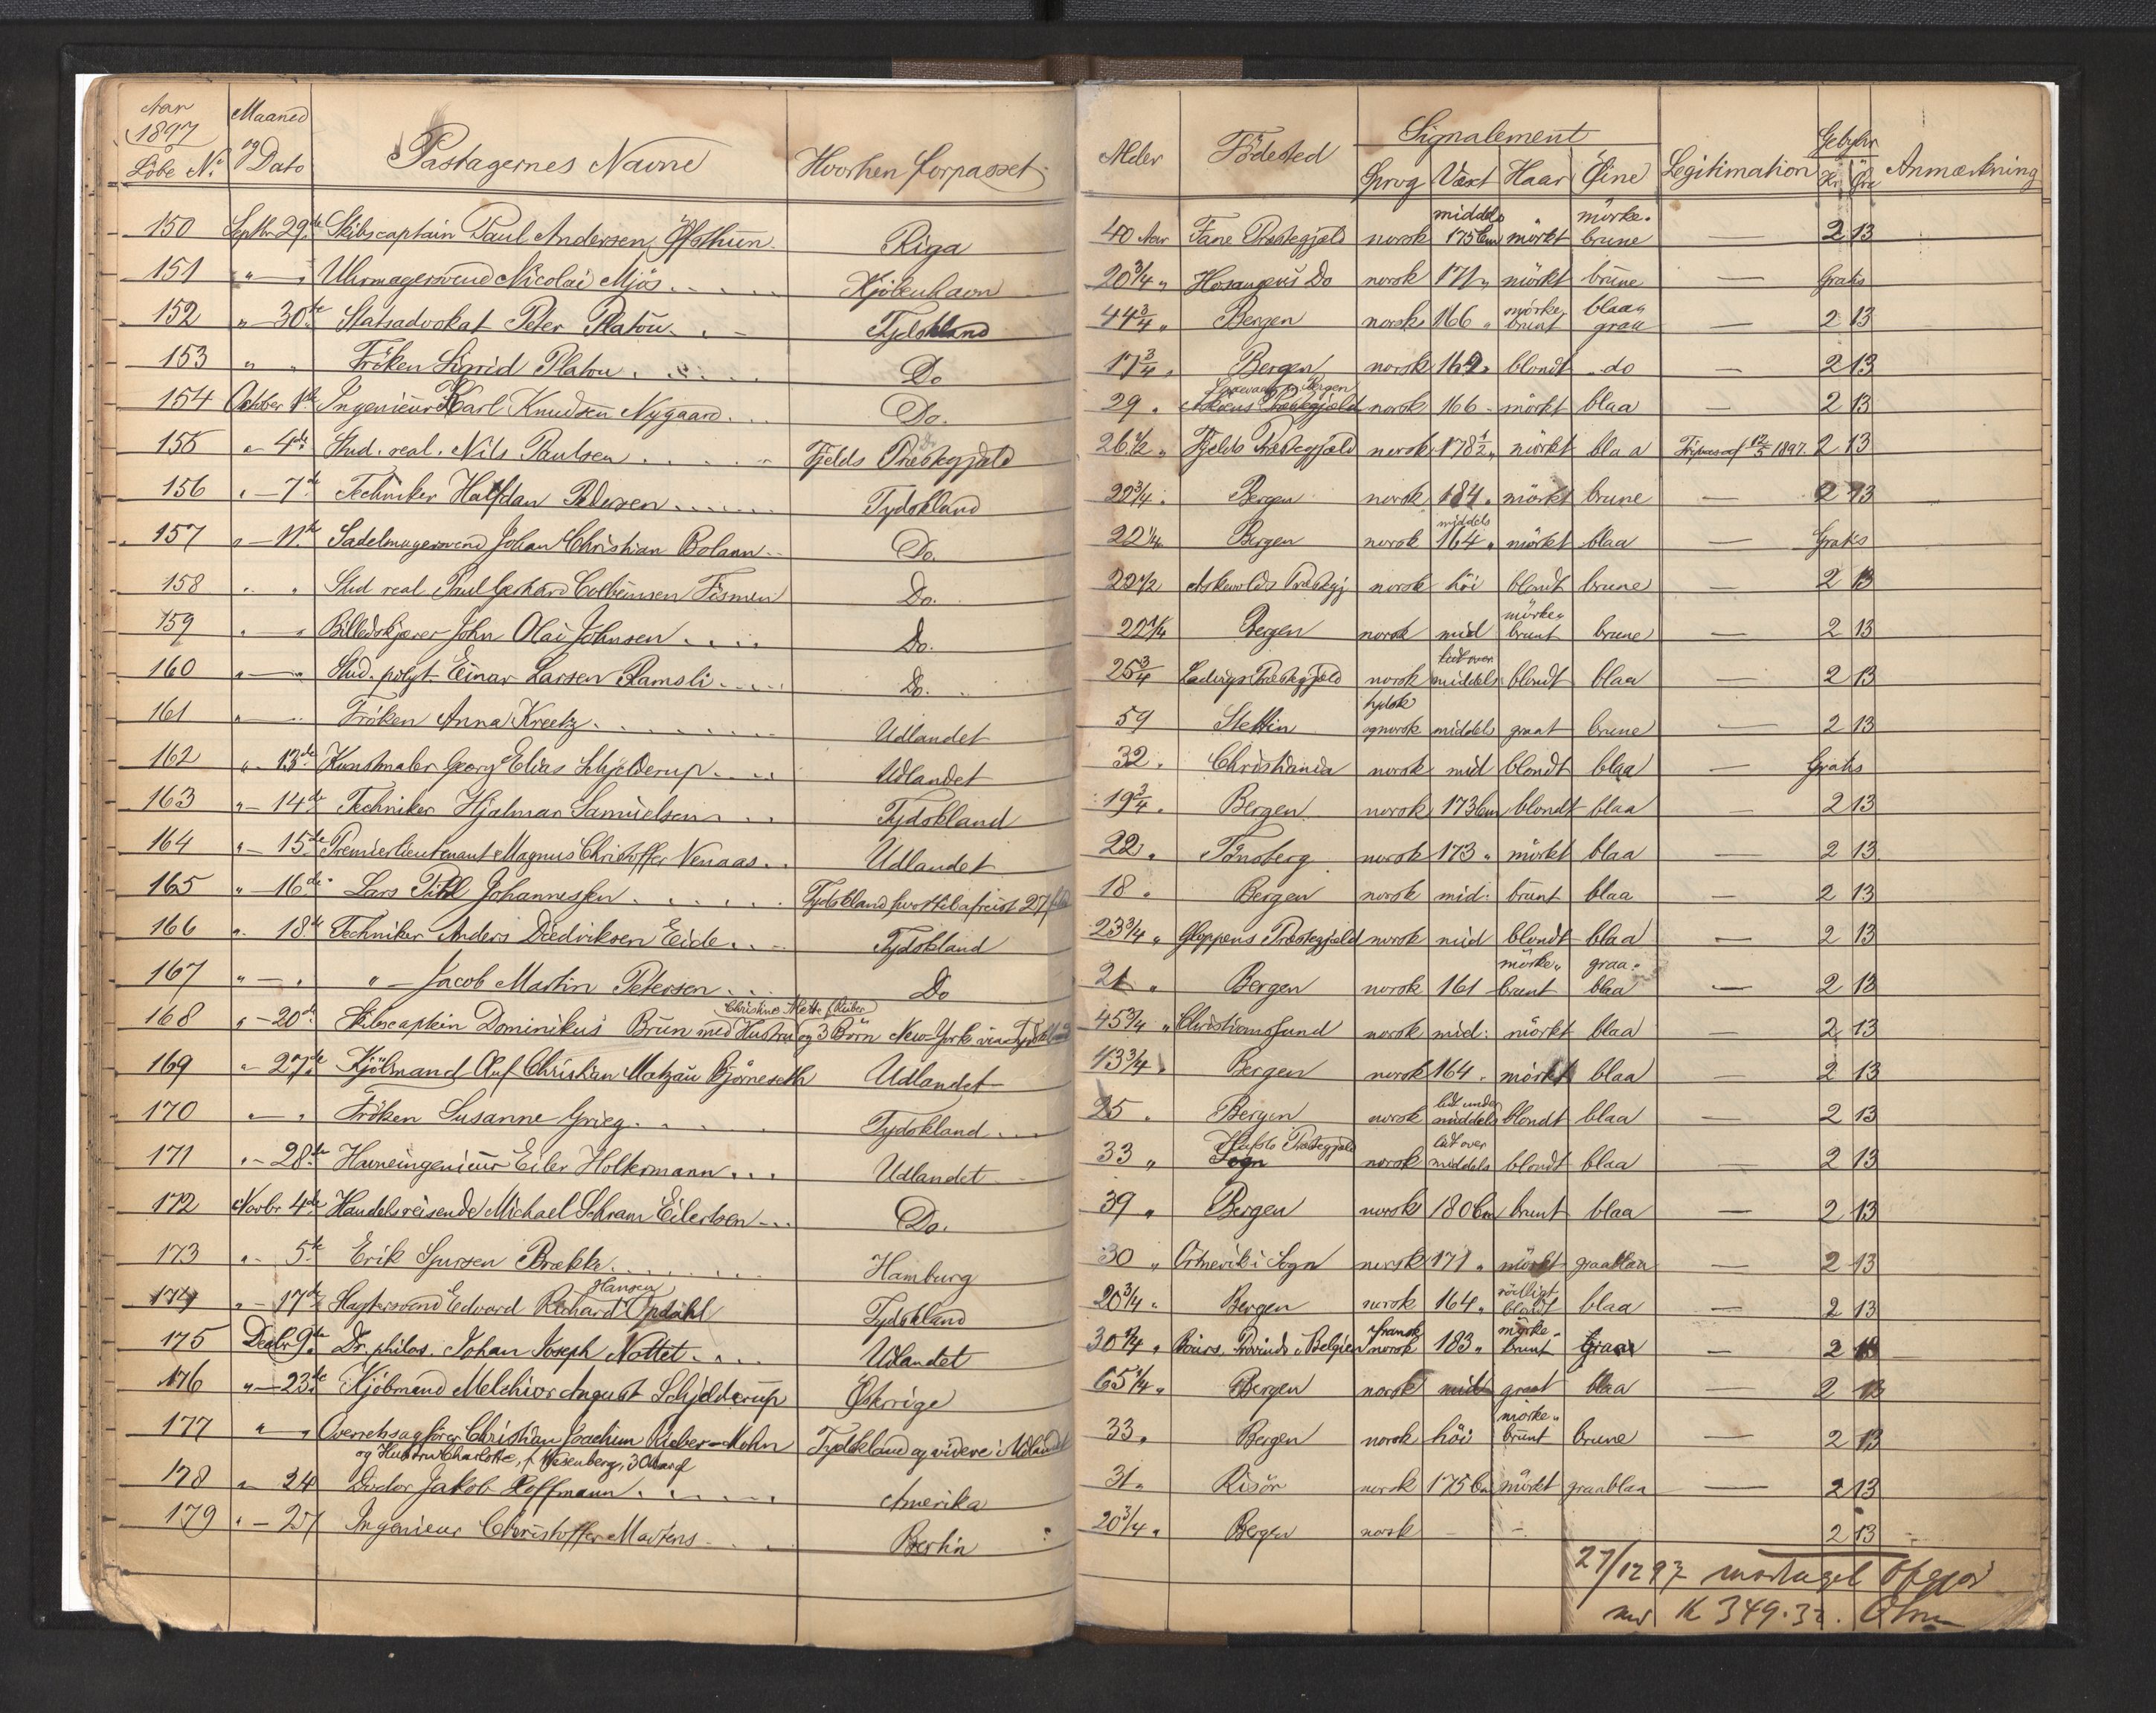 Aar 1897 Löbe No. | Maaned og Dato | Passagernes Navne | Hvorhen forpasset | Alder | Födested | Signalement: Sprog | Væxt | Haar | Öine | Legitimation | Gebyhr Kr. | Öre | Anmærkning
150 Septbr 29de Skibscaptain Paul Andersen Öfsthun. Riga 40 Aar Fane Præstegjæld norsk middels 175 Cm mörkt mörke- brune — 2 13
151 " — " Uhrmagersvend Nicolai Mjös Kjöbenhavn 20 3/4 " Hosangers Do norsk 171 " mörkt brune — Gratis
152 " — 30te Statsadvokat Peter Platou Tydskland 44 3/4 " Bergen norsk 166 " mörke- brunt blaa- graa — 2 13
153 " " Fröken Sigrid Platou Do 17 3/4 " Bergen norsk 162 " blondt do — 2 13
154 October 1ste Ingenieur Karl Knudsen Nygaard Do. 29 " Bergen Præstegjæld norsk 166 mörkt blaa — 2 13
155 " 4de Stud. real. Nils Paulsen Fjelds Præstegjæld 26 1/2 " Fjelds Præstegjæld norsk 178 1/2 " mörkt blaa 1897. 2 13
156 " — 7de Techniker Halfdan Pedersen Tydskland 22 3/4 " Bergen norsk 184 " mörkt brune — 2 13
157 " — 11te Sadelmagersvend Johan Christian Bolann Do. 22 1/4 Bergen norsk middels 164 " mörkt blaa — Gratis
158 " " Stud real Paul Gerhard Colbeinsen Fismen Do. 22 1/2 Askevolds Præstegj norsk höi blondt brune — 2 13
159 " — " Billedskjærer John Olai Johnsen Do. 22 1/4 Bergen norsk mid mörke- brunt brune — 2 13
160 " — " Stud. polyt. Einar Larsen Ramsli Do. 25 3/4 Ladviges Præstegjæld norsk lidt over middels blondt blaa — 2 13
161 " — Fröken Anna Kreetz Udlandet 59 Stettin tydsk og norsk middels graat brune — 2 13
162 " 13de Kunstmaler Georg Elias Schjelderup Udlandet 32 " Christiania norsk mid blondt blaa — Gratis
163 " — 14de Techniker Hjalmar Samuelsen Tydskland 19 3/4 " Bergen norsk 173 Cm blondt blaa — 2 13
164 " — 15de Premierlieutenant Magnus Christoffer Nenaas Udlandet 22 " Tönsberg norsk 173 " mörkt blaa — 2 13
165 " — 16de Lars Pihl Johannessen Tydskland 18 " Bergen norsk mid: brunt blaa — 2 13
166 " 18de Techniker Anders Diedriksen Eide Tydskland 23 3/4 " Gloppens Præstegjæld norsk mid blondt blaa — 2 13
167 " — " " — Jacob Martin Petersen Do 21 " Bergen norsk 161 mörke- brunt graa- blaa — 2 13
168 " — 20de Skibscaptein Dominikus Brun med Hustru Christine Mette og 3 Börn New-York via Tydskland 45 3/4 " Christiansund norsk mid: mörkt blaa — 2 13
169 " 27de Kjöbmand Oluf Christian Matzau Björneseth Udlandet 43 3/4 " Bergen norsk 164 mörkt blaa — 2 13
170 " — " Fröken Susanne Grieg Tydskland 25 " Bergen norsk lidt under middels blondt blaa — 2 13
171 " — 28de Havneingenieur Eiler Holtermann Udlandet 33 " Hafslo Præstegjæld Sogn norsk lidt over middels blondt blaa — 2 13
172 Novbr 4de Handelsreisende Michael Schram Eilertsen Do. 39 " Bergen norsk 180 Cm brunt blaa — 2 13
173 " — 5te Erik Sjursen Brække Hamburg 30 " Ortnevik i Sogn norsk 171 " mörkt graablaa — 2 13
174 " — 17de Edvard Richard Hansen Opdahl Tydskland 20 3/4 " Bergen norsk 164 " rödligt blondt blaa — 2 13
175 Decbr 9de Dr. philos. Johan Joseph Nottet Udlandet 30 1/4 " Provinds i Belgien fransk norsk 183 " mörke- brunt Graa — 2 13
176 " — 23de Kjöbmand Melchior August Schjelderup Östrige 65 1/4 " Bergen norsk mid graat blaa — 2 13
177 " — " Overretssagförer Christian Joachim Rieber-Mohn Tydskland og videre i Udlandet 33 " Bergen norsk höi mörke- brunt brune — 2 13
og Hustru Charlotte, f. Wesenberg, 30 Aar
178 " 24 Doctor Jakob Hoffmann Amerika 31 " Risör norsk 175 Cm mörkt graablaa — 2 13
179 " — 27 Ingenieur Christoffer Martens Berlin 20 3/4 " Bergen norsk — — 2 13
27/12 97 modtaget
K 349.32.